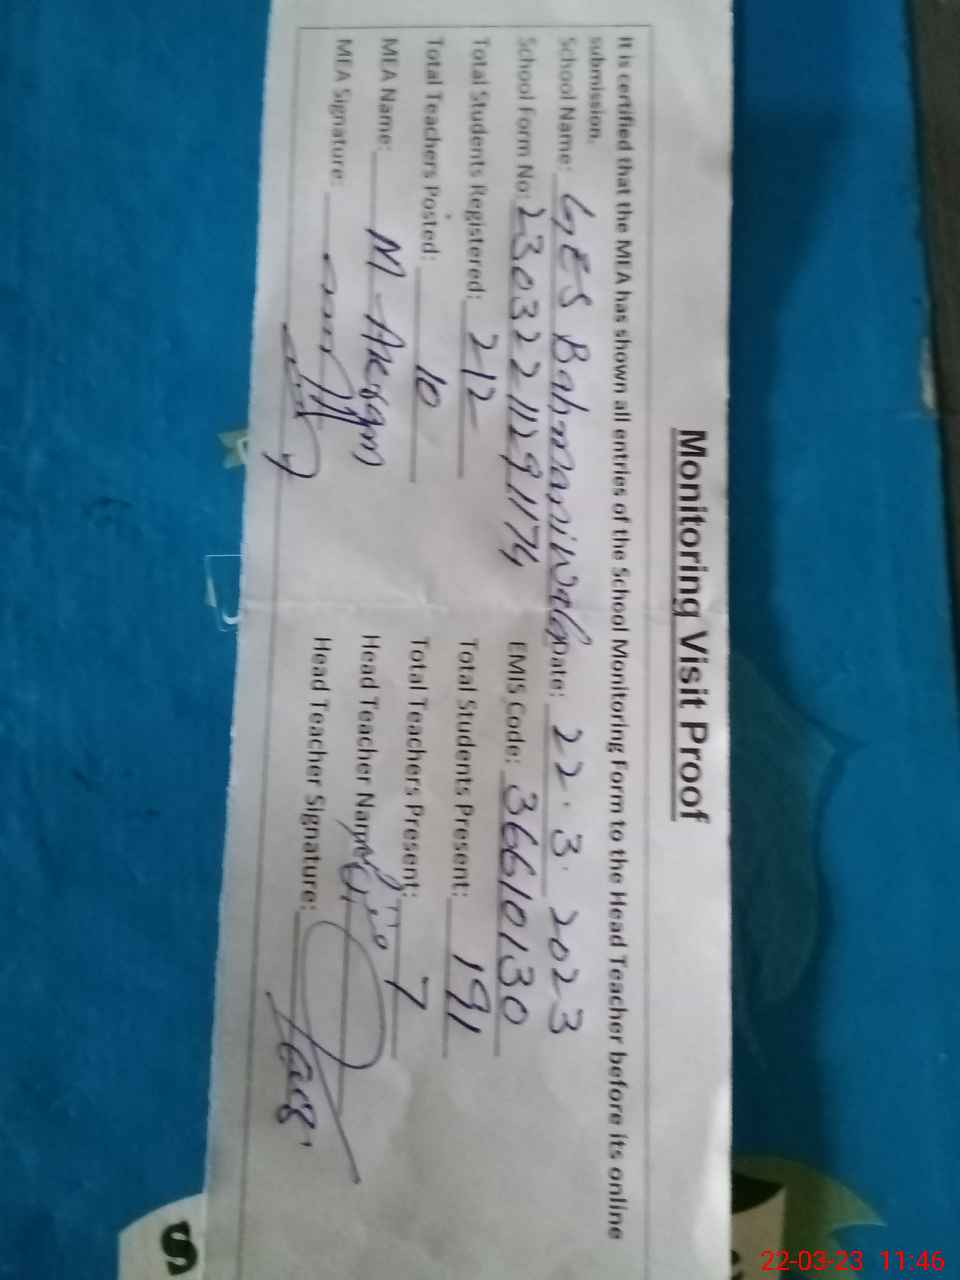 Monitoring Visit Proof
It is certified that the MEA has shown all entries of the School Monitoring Form to the Head Teacher before its online
submission.
School Name: GES Bahmaniwala Date: 22.3.2023
School Form No: 23032211291174 EMIS Code: 36610130
Total Students Registered: 212 Total Students Present: 191
Total Teachers Posted: 10 Total Teachers Present: 7
MEA Name: M-Akram Head Teacher Name:
MEA Signature: Head Teacher Signature:
S
22-03-23 11:46